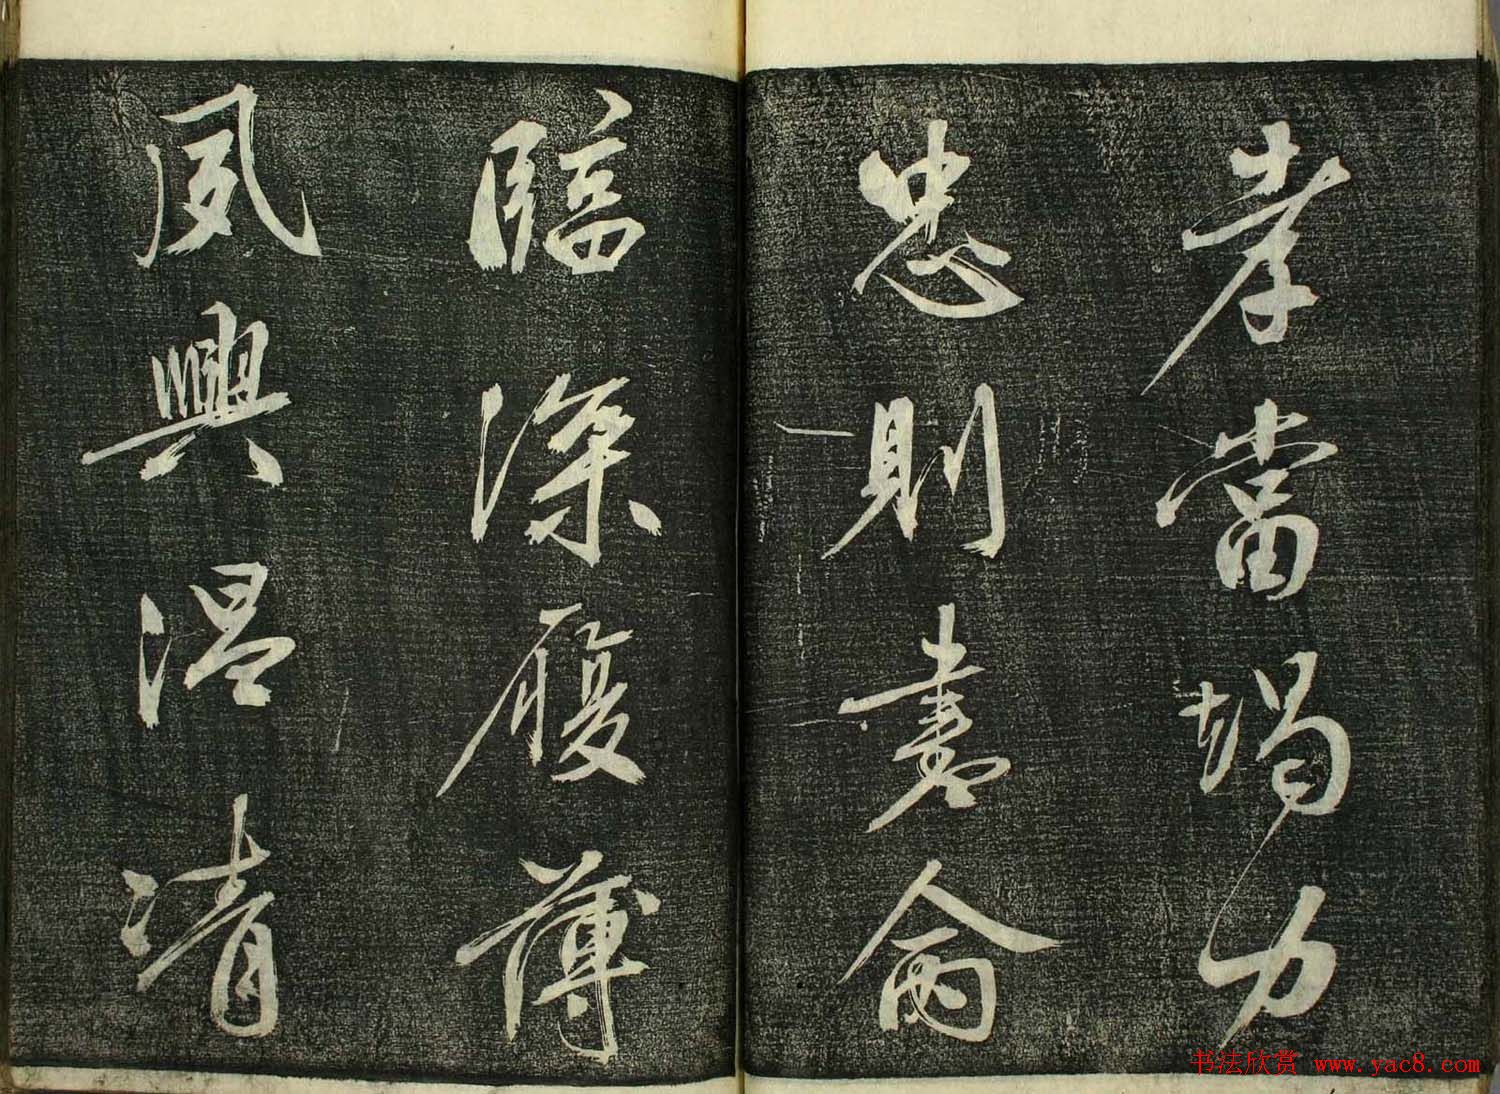 孝當竭力
忠則盡命
臨深履薄
夙興温凊
书法欣赏 www.yac8.com